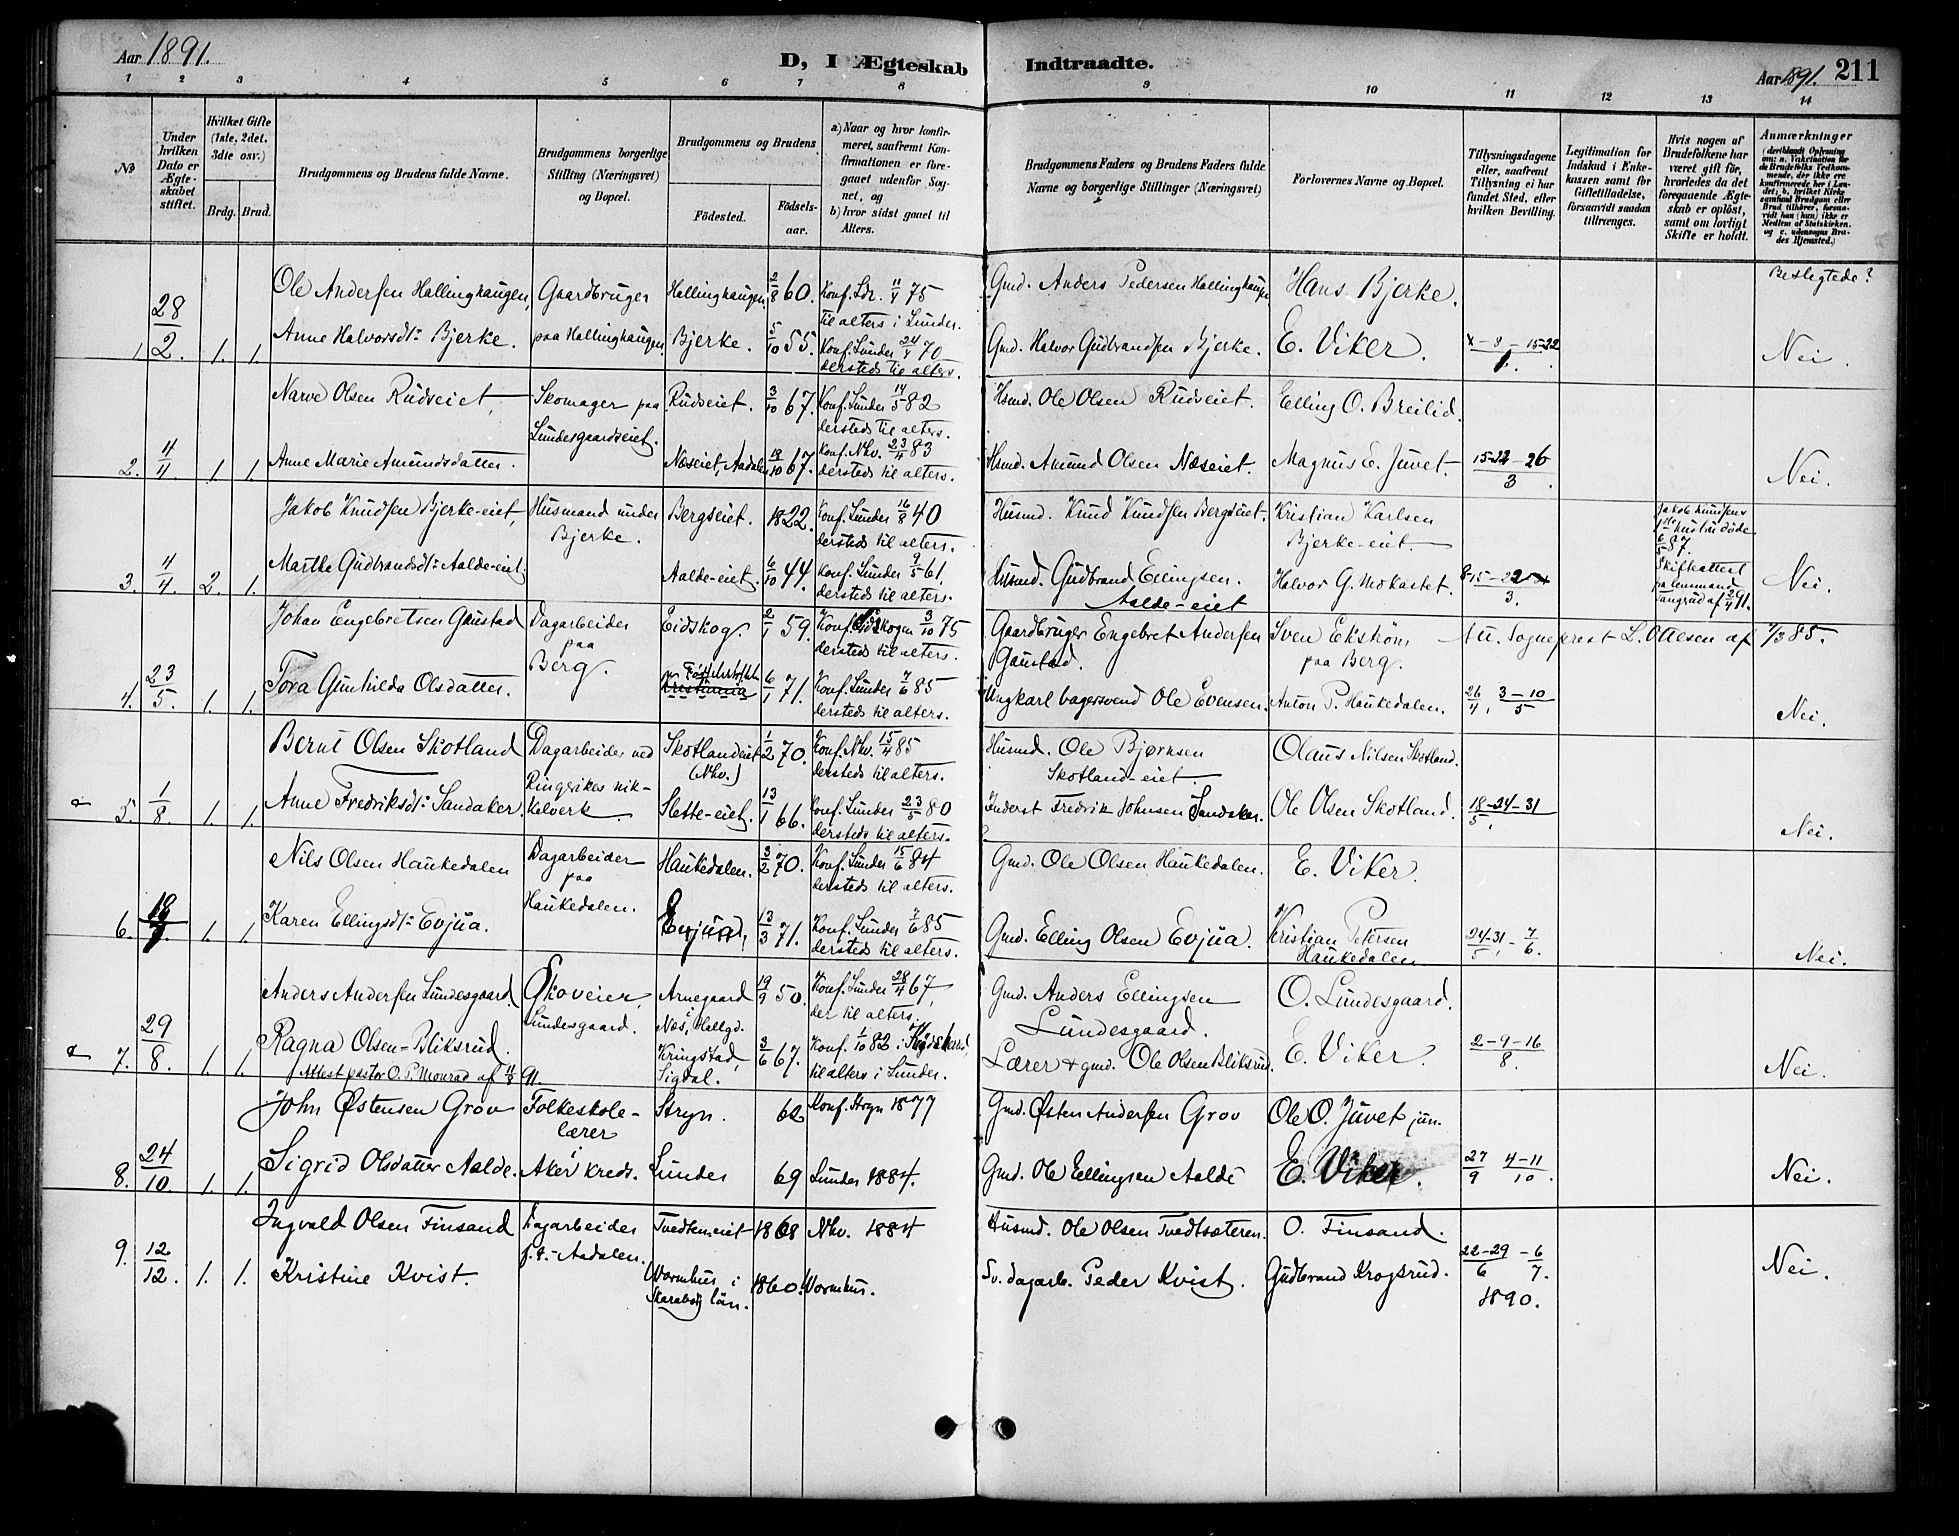 Aar 1891.
D, I Ægteskab Indtraadte.
Aar 1891. 211
1 2 3 4 5 6 7 8 9 10 11 12 13 14
№
Under hvilken Dato er Ægteskabet stiftet.
Hvilket Gifte (1ste, 2det, 3die osv.)
Brdg. Brud.
Brudgommens og Brudens fulde Navne.
Brudgommens borgerlige Stilling (Næringsvei) og Bopæl.
Brudgommens og Brudens
Födested.
Födsels-aar.
a) Naar og hvor konfirmeret, saafremt Konfirmationen er foregaaet udenfor Sognet, og
b) hvor sidst gaaet til Alters.
Brudgommens Faders og Brudens Faders fulde Navne og borgerlige Stillinger (Næringsvei)
Forlovernes Navne og Bopæl.
Tillysningsdagene eller, saafremt Tillysning ei har fundet Sted, efter hvilken Bevilling.
Legitimation for Indskud i Enkekassen samt for Giftetilladelse, forsaavidt saadan tiltrænges.
Hvis nogen af Brudefolkene har været gift för, hvorledes da det foregaaende Ægteskab er oplöst, samt om lovligt Skifte er holdt.
Anmærkninger
Beslegtede?
1. 28/2. 1. 1. Ole Andersen Hallinghaugen, Gaardbruger paa Hallinghaugen. Hallinghaugen. 2/8 60. Konf. Ldr. 11/4 75 til alters i Lunder. Gmd. Anders Pedersen Hallinghaugen Hans Bjerke.
Anne Halvorsdt: Bjerke. Bjerke. 5/10 55. Konf. Lunder 24/4 70 dersteds til alters. Gmd. Halvor Gudbrandsen Bjerke. E. Viker. Nei.
2. 4/4. 1. 1. Narve Olsen Rudseiet, Skomager paa Lundesgaardseiet. Rudseiet. 3/10 67. Konf. Lunder 14/5 82 dersteds til alters. Hsmd. Ole Olsen Rudseiet. Elling O. Breilid.
Anne Marie Amundsdatter. Næseiet, Aadalen 18/10 67. Konf. Nhv. 23/4 83 dersteds til alters. Hsmd. Amund Olsen Næseiet. Magnus E. Juvet. 15-22-26/3. Nei.
3. 4/4. 2. 1. Jakob Knudsen Bjerke-eiet, Husmand under Bjerke. Bergseiet. 1822. Konf. Lunder 16/8 40 dersteds til alters. Husmd. Knud Knudsen Bergseiet. Kristian Karlsen Bjerke-eiet. Jakob Knudsens 1ste hustru döde 6/5 87. Skifteattest
Marthe Gudbrandsdt: Aalde-eiet. Aalde-eiet. 6/10 44. Konf. Lunder 9/5 61. dersteds til alters. Husmd. Gudbrand Ellingsen. Aalde-eiet Halvor G. Mokastet. 8-15-22/3. Nei.
4. 23/5. 1. 1. Johan Engebretsen Gaustad Dagarbeider paa Berg. Eidskog. 2/1 59. Konf. Eidskogen 3/10 75 dersteds til alters. Gaardbruger Engebret Andersen Gaustad. Sven Ekström paa Berg. Att. Sogneprest L. Ottesen af 7/3 85.
Tora Gunhilda Olsdatter. Kristiania 6/1 71. Konf. Lunder 7/6 85 dersteds til alters. Ungkarl bagersvend Ole Evensen. Anton P. Haukedalen. 26/4, 3-10/5 Nei.
5. 1/8. 1. 1. Bernt Olsen Skotland Dagarbeider ved Ringerikes nikkelverk. Skotlandeiet (Nhv.) 1/2 70. Konf. Nhv. 15/4 85 dersteds til alters. Husmd. Ole Bjørnsen Skotland-eiet. Olaus Nilsen Skotland.
Anne Fredriksdt: Sandaker. Slette-eiet. 13/1 66. Konf. Lunder 23/5 80 dersteds til alters. Inderst Fredrik Johnsen Sandaker. Ole Olsen Skotland. 18-24-31/5. Nei.
6. 1. 1. Nils Olsen Haukedalen Dagarbeider paa Haukedalen. Haukedalen. 3/2 70. Konf. Lunder 15/6 84 dersteds til alters. Gmd. Ole Olsen Haukedalen. E. Viker.
Karen Ellingsdt: Evjua. Evjua, 13/3 71. Konf. Lunder 7/6 85 dersteds til alters. Gmd. Elling Olsen Evjua. Kristian Petersen Haukedalen 24-31/5, - 7/6. Nei.
7. 29/8. 1. 1. Anders Andersen Lundesgaard. Skoveier, Lundesgaard. Arnegaard i Næs, Hallgd. 19/9 50. Konf. Lunder 28/4 67, der til alters. Gmd. Anders Ellingsen Lundesgaard. O. Lundesgaard.
Ragna Olsen-Bliksrud. Kringstad, Sigdal. 3/6 67. Konf. 1/10 82 i til alters i Lunder. Lærer & gmd. Ole Olsen Bliksrud. E. Viker. 2-9-16/8. Nei.
Attest pastor O. P. Monrad af 91.
8. 24/10. 1. 1. John Østensen Grov Folkeskole-lærer i Aker kreds. Stryn. 62 Konf. Stryn 1877 Gmd. Østen Andersen Grov Ole O. Juvet jun.
Sigrid Olsdatter Aalde. Lunder 69 Lunder 1884. Gmd. Ole Ellingsen Aalde E. Viker. 27/9 4-11/10. Nei.
9. 12/12. 1. 1. Ingvald Olsen Finsand Dagarbeider f. t. Aadalen. Tvedteneiet 1868 Nhv. 1884 Husmd. Ole Olsen Tvedtsæteren. O. Finsand.
Kristine Kvist. Wormhus i Skaraborg län. 1860. Wormhus. Sv. dagarb. Peder Kvist. Gudbrand Krogsrud. 22-29/6 - 6/7. 1890. Nei.